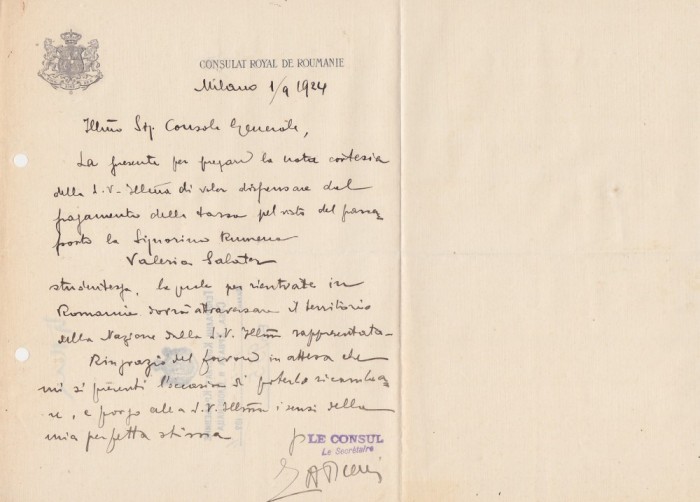 CONSULAT ROYAL DE ROUMANIE
Milano 1/9 1924
Illmo Sig. Console Generale,
La presente per pregare la nota cortesia
della S.V. Illma di voler dispensare dal
pagamento della tassa pel visto del passa
porto la Signorina Rumena
Valeria
studentessa, la quale per rientrare in
Romania dovrà attraversare il territorio
della Nazione dalla S.V. Illma rappresentata-
Ringrazio del favore in attesa che
mi si presenti l'occasione di poterlo ricambia
re, e porgo alla S.V. Illma i sensi della
mia perfetta stima
p LE CONSUL
Le Secrétaire